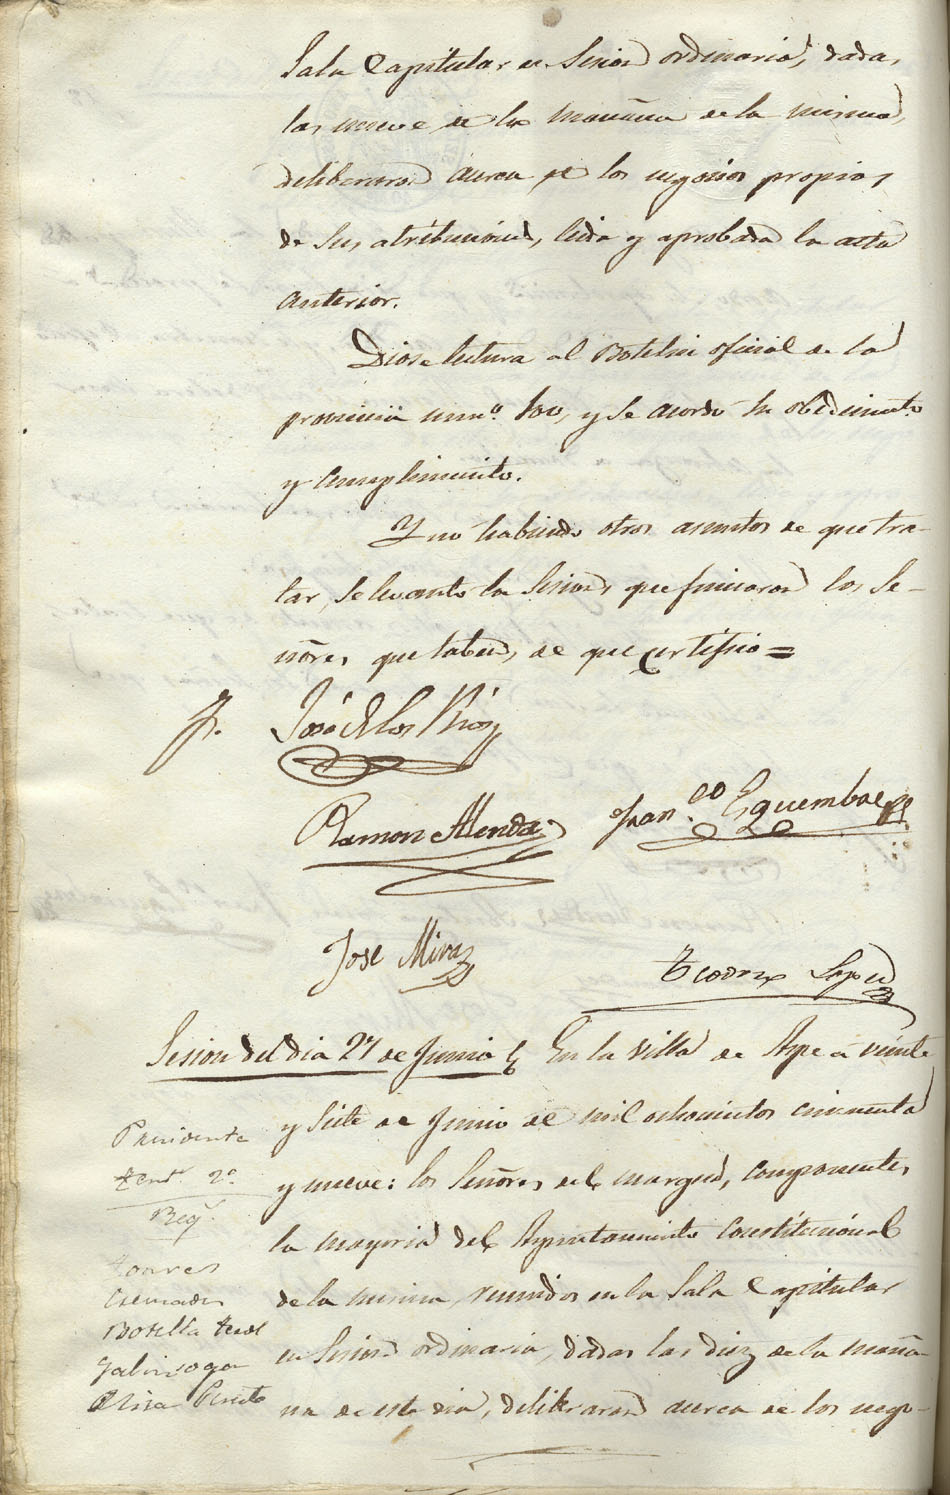 Sala Capitular en Sesion ordinaria, dadas
las nueve de la mañana de la misma,
deliberaron acerca de los negocios propios
de sus atribuciones, leida y aprobada la acta
anterior.
Diose lectura al Boletin oficial de la
provincia num.º 100, y se acordó su obedecimiento
y cumplimiento.
Y no habiendo otros asuntos de que tra-
tar, se levantó la Sesion, que firmaron los Se-
ñores que saben, de que certifico =
José de los Rios
Ramon Alenda
Fran.co Esquembre
Jose Mira
Teodoro Lopez
Sesion del dia 27 de Junio
En la villa de Aspe a veinte
y siete de Junio de mil ochocientos cincuenta
y nueve: los Señores del margen, componentes
la mayoria del Ayuntamiento Constitucional
de la misma, reunidos en la Sala Capitular
en Sesion ordinaria, dadas las diez de la maña-
na de este dia, deliberaron acerca de los nego-
Presidente
Tent.e 2.º
Reg.s
Botella